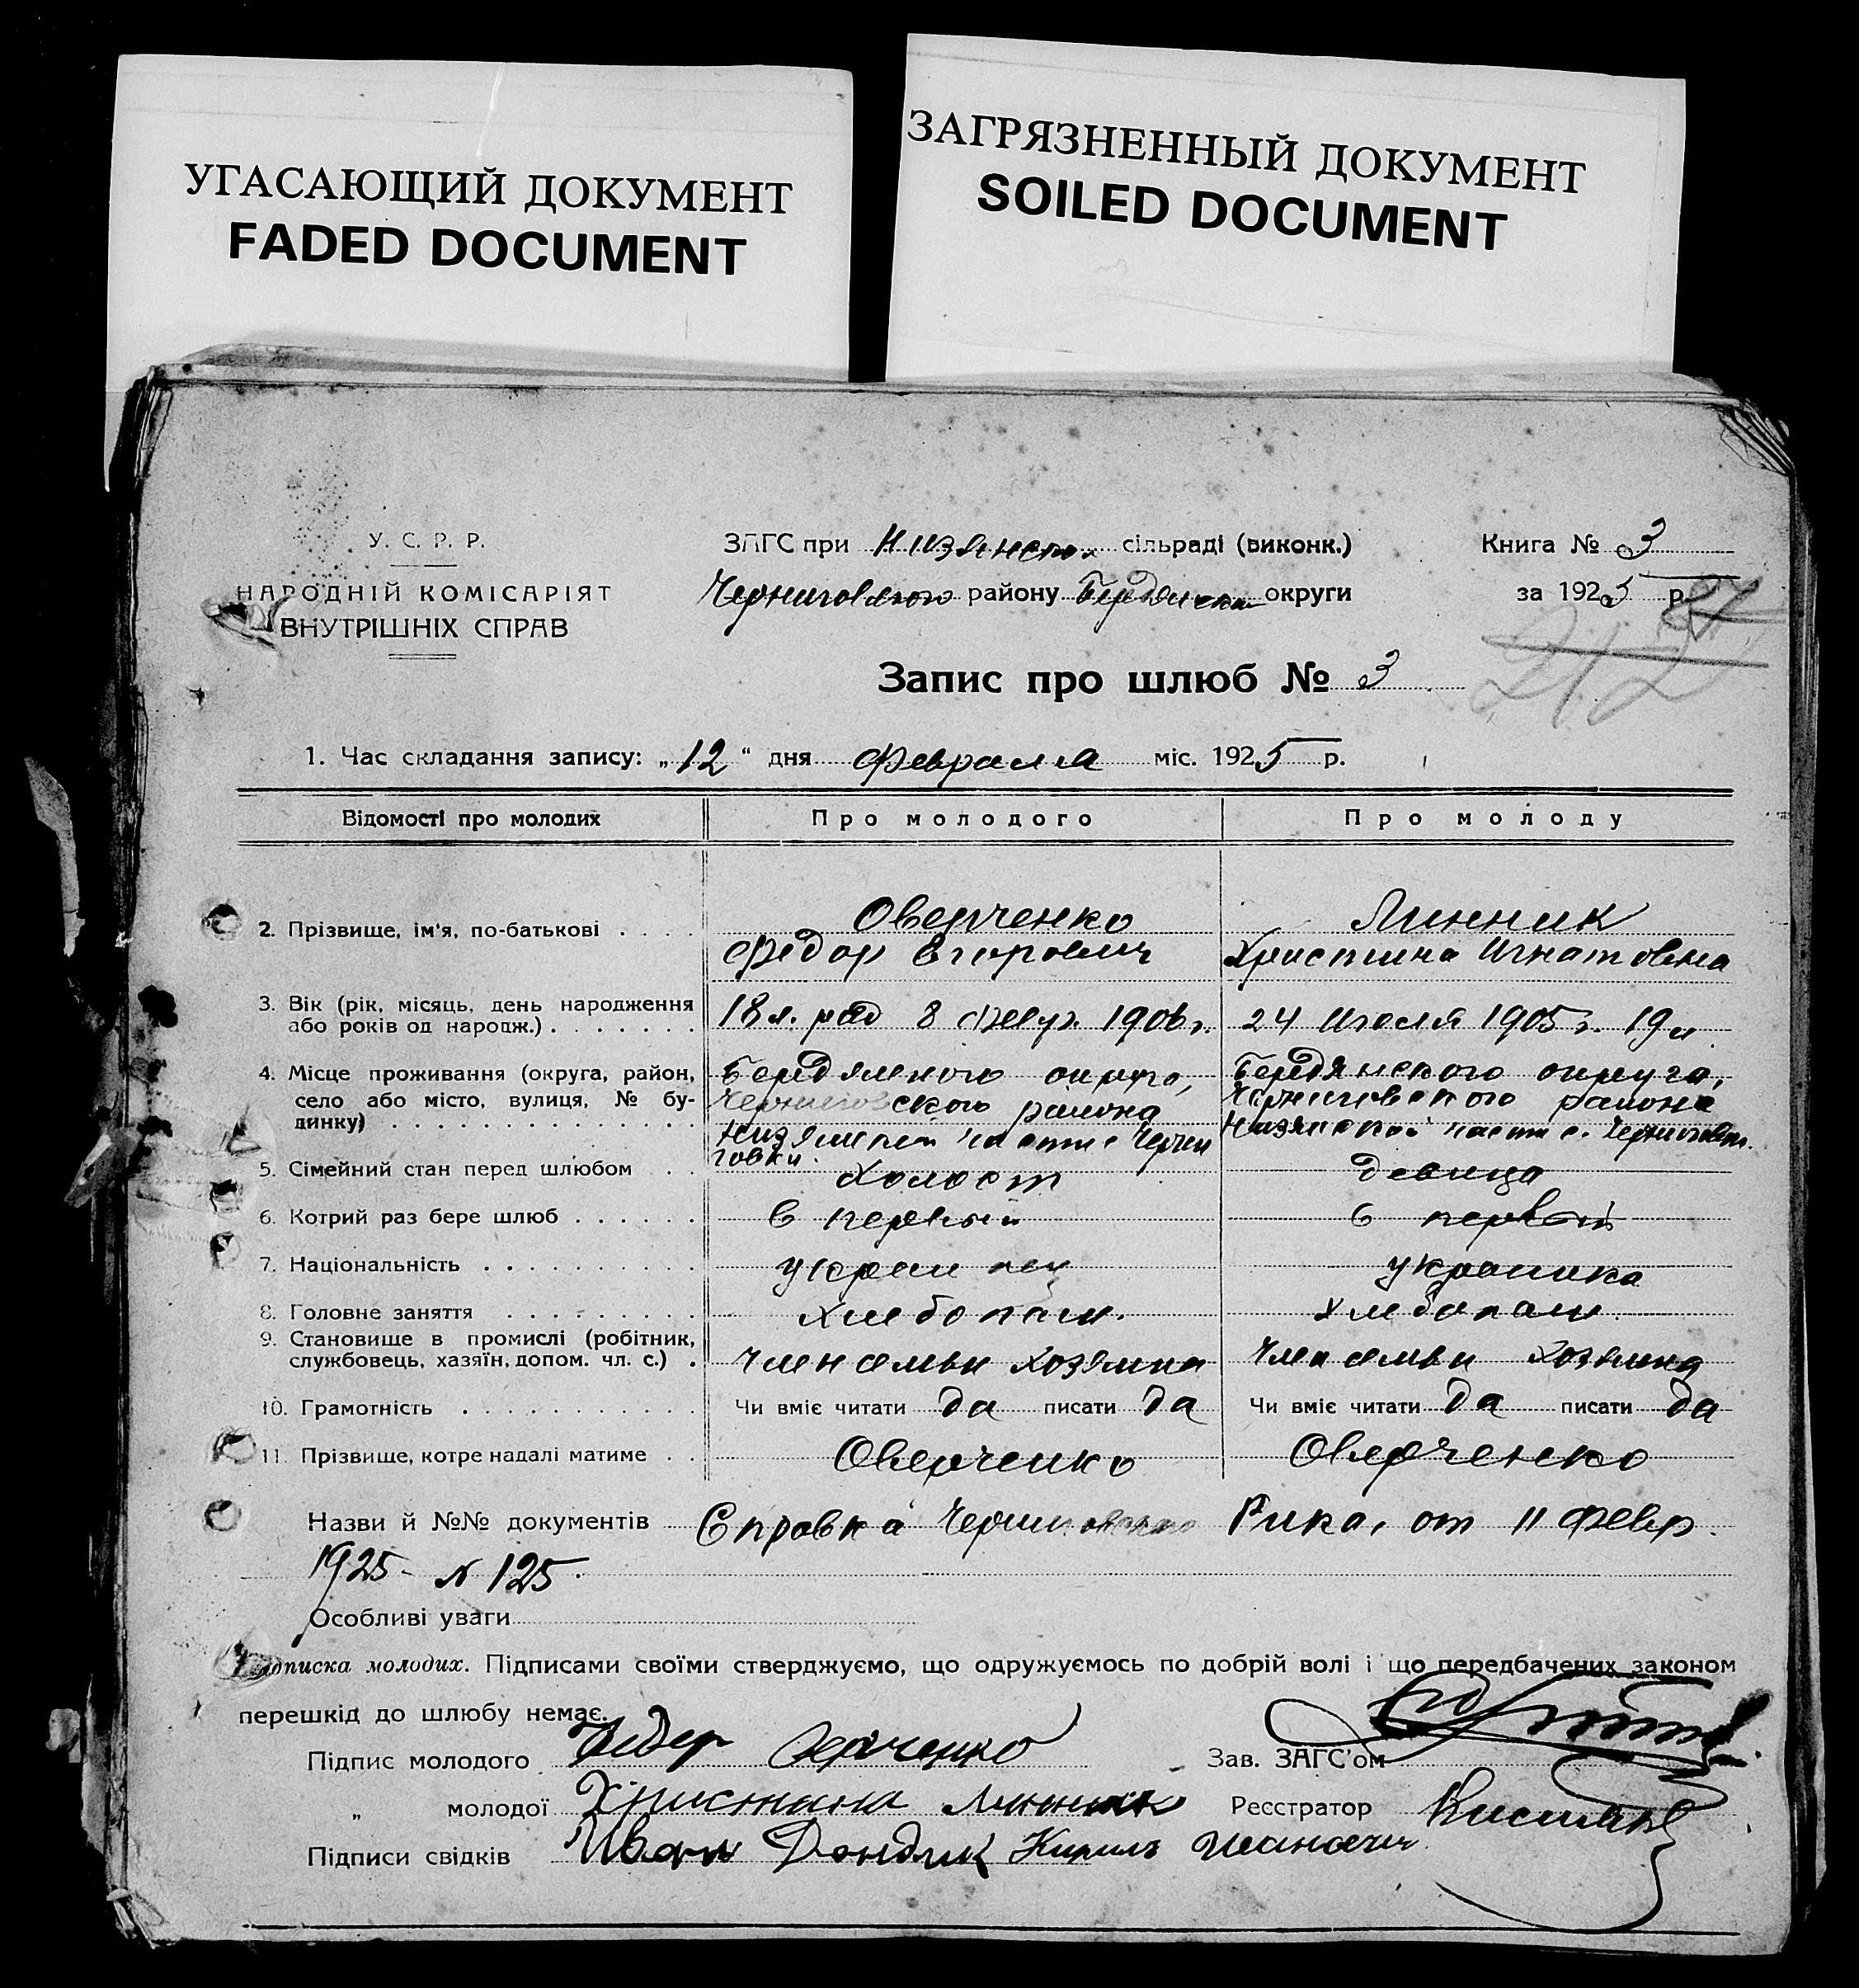 УГАСАЮЩИЙ ДОКУМЕНТ
FADED DOCUMENT
ЗАГРЯЗНЕННЫЙ ДОКУМЕНТ
SOILED DOCUMENT
У. С. Р. Р.
НАРОДНІЙ КОМІСАРІЯТ
ВНУТРІШНІХ СПРАВ
ЗАГС при сільраді (виконк.)
Черниговского району Бердянской округи
Книга № 3
за 1925 р.
212
Запис про шлюб № 3
1. Час складання запису: „12“ дня Февраля міс. 1925 р.
Відомості про молодих Про молодого Про молоду
2. Прізвище, ім'я, по-батькові . . . . Оверченко Линник
Федор Егорович Христина Игнатовна
3. Вік (рік, місяць, день народження
або років од народж.) . . . . . . . 18 л. род 8 Февр. 1906 г. 24 Июля 1905 г. 19 л.
4. Місце проживання (округа, район, Бердянского округа, Бердянского округа,
село або місто, вулиця, № бу- Черниговского района Черниговского района
динку) . . . . . . . . . . . . . . Низянской части с Черни Низянской части с. Черниговки.
говки.
5. Сімейний стан перед шлюбом . . Холост Девица
6. Котрий раз бере шлюб . . . . . . в первый в первый
7. Національність . . . . . . . . . . украинец украинка
8. Головне заняття . . . . . . . . . хлебопаш. хлебопаш.
9. Становище в промислі (робітник,
службовець, хазяїн, допом. чл. с.) . член семьи хозяина Член семьи хозяина
10. Грамотність . . . . . . . . . . . Чи вміє читати да писати да Чи вміє читати да писати да
11. Прізвище, котре надалі матиме . . Оверченко Оверченко
Назви й №№ документів Справка Черниговского Рика, от 11 февр.
1925 - № 125.
Особливі уваги
Підписка молодих. Підписами своїми стверджуємо, що одружуємось по добрій волі і що передбачених законом
перешкід до шлюбу немає.
Підпис молодого Федор Оверченко Зав. ЗАГС'ом
„ молодої Христина Линник Реєстратор
Підписи свідків Иван Дондик Кирилъ